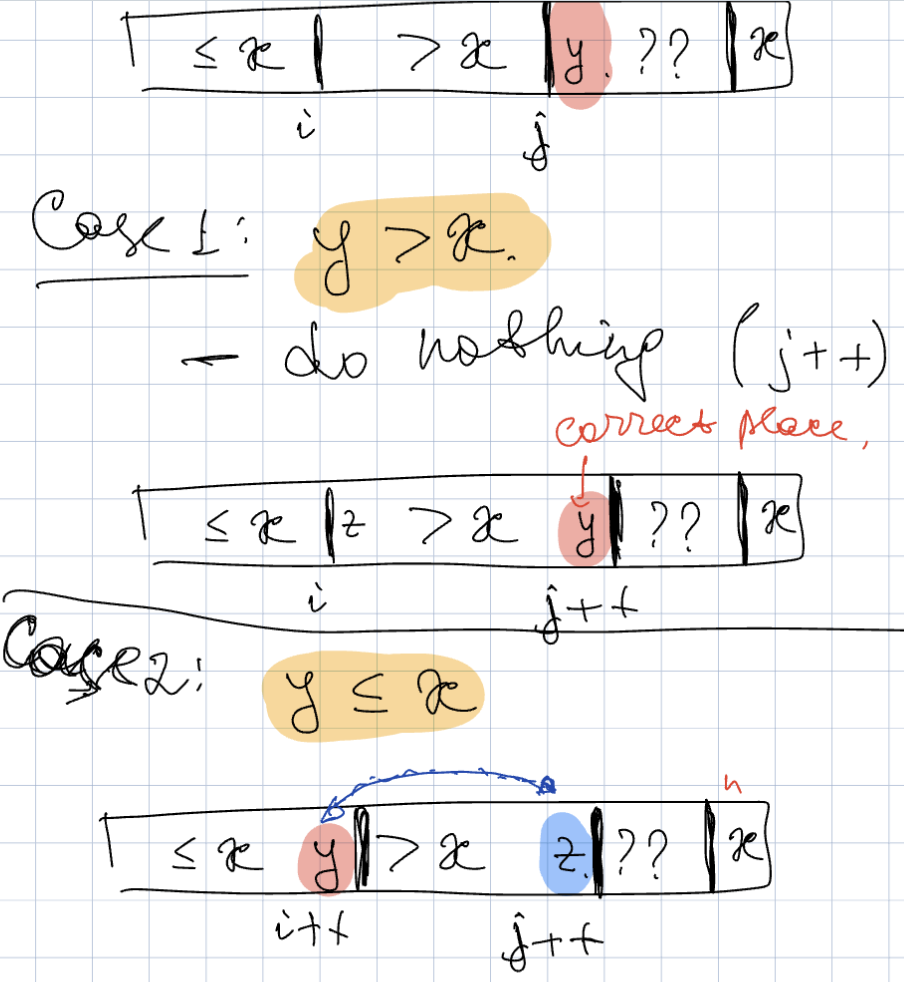 ≤ x | > x | y ?? | x
i j
Case 1: y > x.
- do nothing (j++)
correct place.
≤ x | z > x y | ?? | x
i j++
Case 2:
y ≤ x
n
≤ x y | > x z | ?? | x
i++ j++